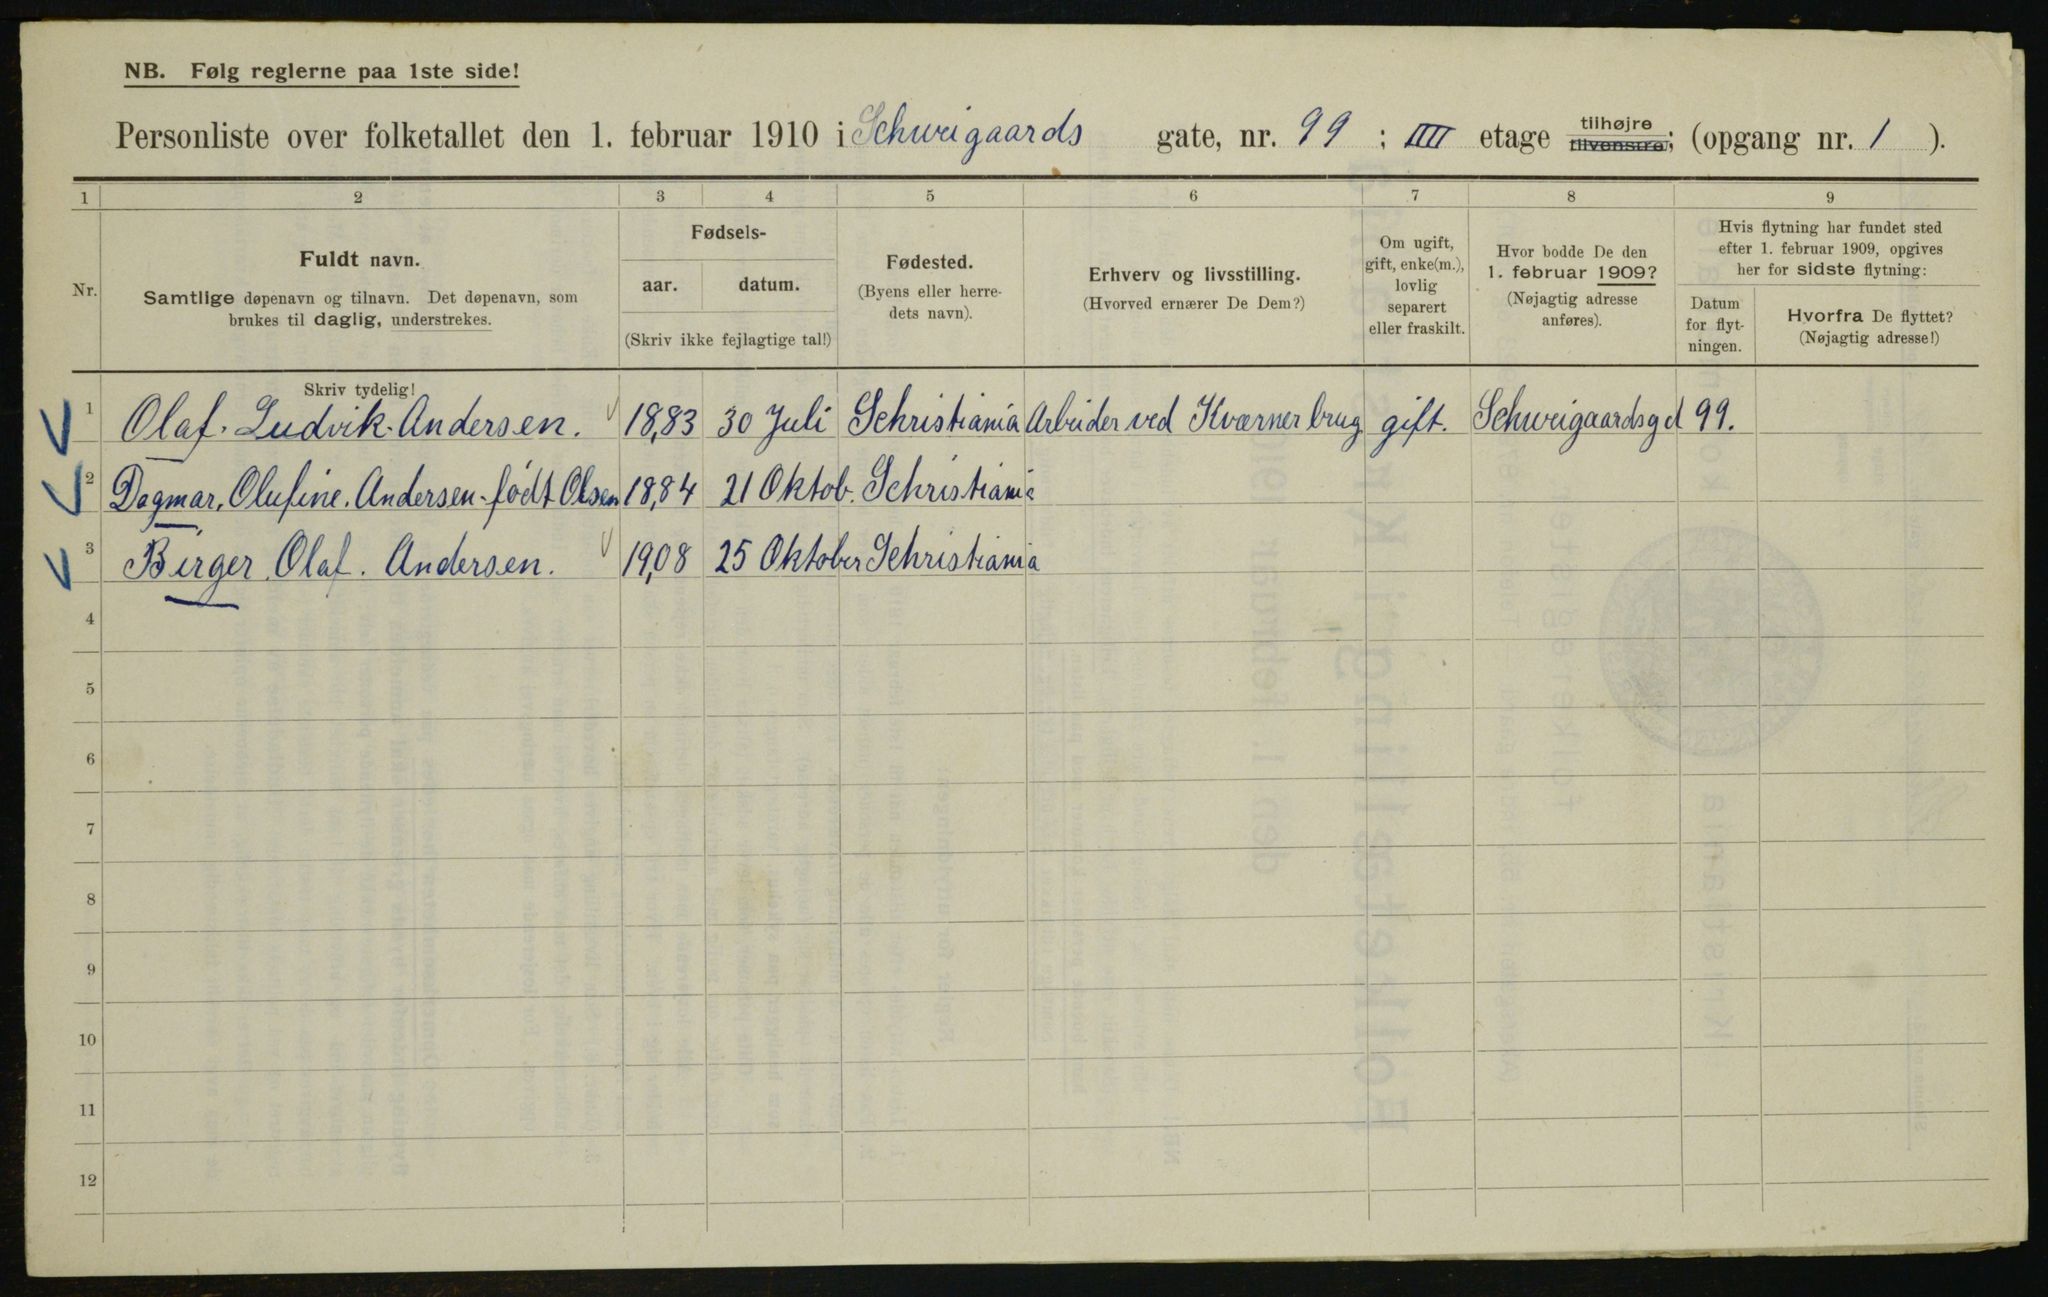 NB. Følg reglerne paa 1ste side!
Personliste over folketallet den 1. februar 1910 i Schweigaards gate, nr. 99 ; IIII etage tilhøjre tilvenstre; (opgang nr. 1 ).
1 2 3 4 5 6 7 8 9
Nr.
Fuldt navn.
Samtlige døpenavn og tilnavn. Det døpenavn, som
brukes til daglig, understrekes.
Fødsels-
aar. datum.
(Skriv ikke fejlagtige tal!)
Fødested.
(Byens eller herre-
dets navn).
Erhverv og livsstilling.
(Hvorved ernærer De Dem?)
Om ugift,
gift, enke(m.),
lovlig
separert
eller fraskilt.
Hvor bodde De den
1. februar 1909?
(Nøjagtig adresse
anføres).
Hvis flytning har fundet sted
efter 1. februar 1909, opgives
her for sidste flytning:
Datum
for flyt-
ningen.
Hvorfra De flyttet?
(Nøjagtig adresse!)
Skriv tydelig!
1 Olaf. Ludvik. Andersen. 18,83 30 Juli Schristiania Arbeider ved Kværner brug gift. Schweigaardsgd 99.
2 Dagmar, Olufine. Andersen. født Olsen 18,84 21 Oktob. Schristiania
3 Birger Olaf. Andersen. 19,08 25 Oktober Schristiania
4
5
6
7
8
9
10
11
12